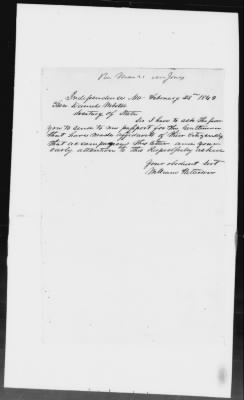 Independence Mo. February 25th 1849
Hon Daniel Webster
Secretary of State
Sir I have to ask the favor
you to send to me passport for the Gentlemen
that have made affidavits of their Citizenship
that accompanyes this letter and your
early attention to this Respectfuly asken
Your obedient Svt
William Patterson